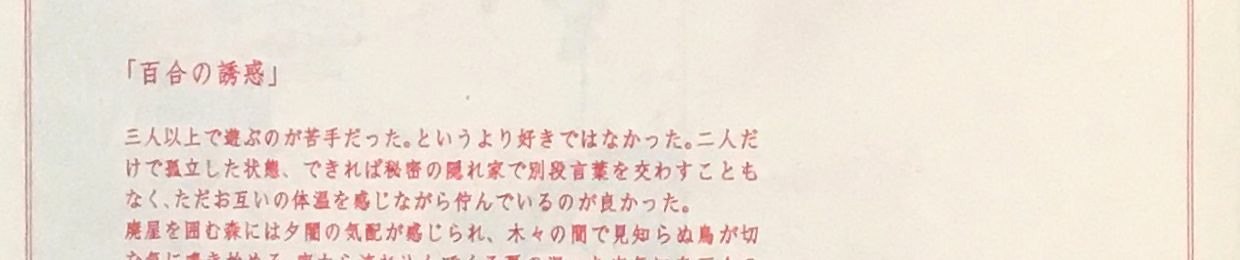 「百合の誘惑」
三人以上で遊ぶのが苦手だった。というより好きではなかった。二人だ
けで孤立した状態、できれば秘密の隠れ家で別段言葉を交わすことも
なく、ただお互いの体温を感じながら佇んでいるのが良かった。
廃屋を囲む森には夕闇の気配が感じられ、木々の間で見知らぬ鳥が切